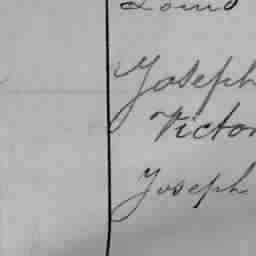 Louis
Joseph
Victor
Joseph